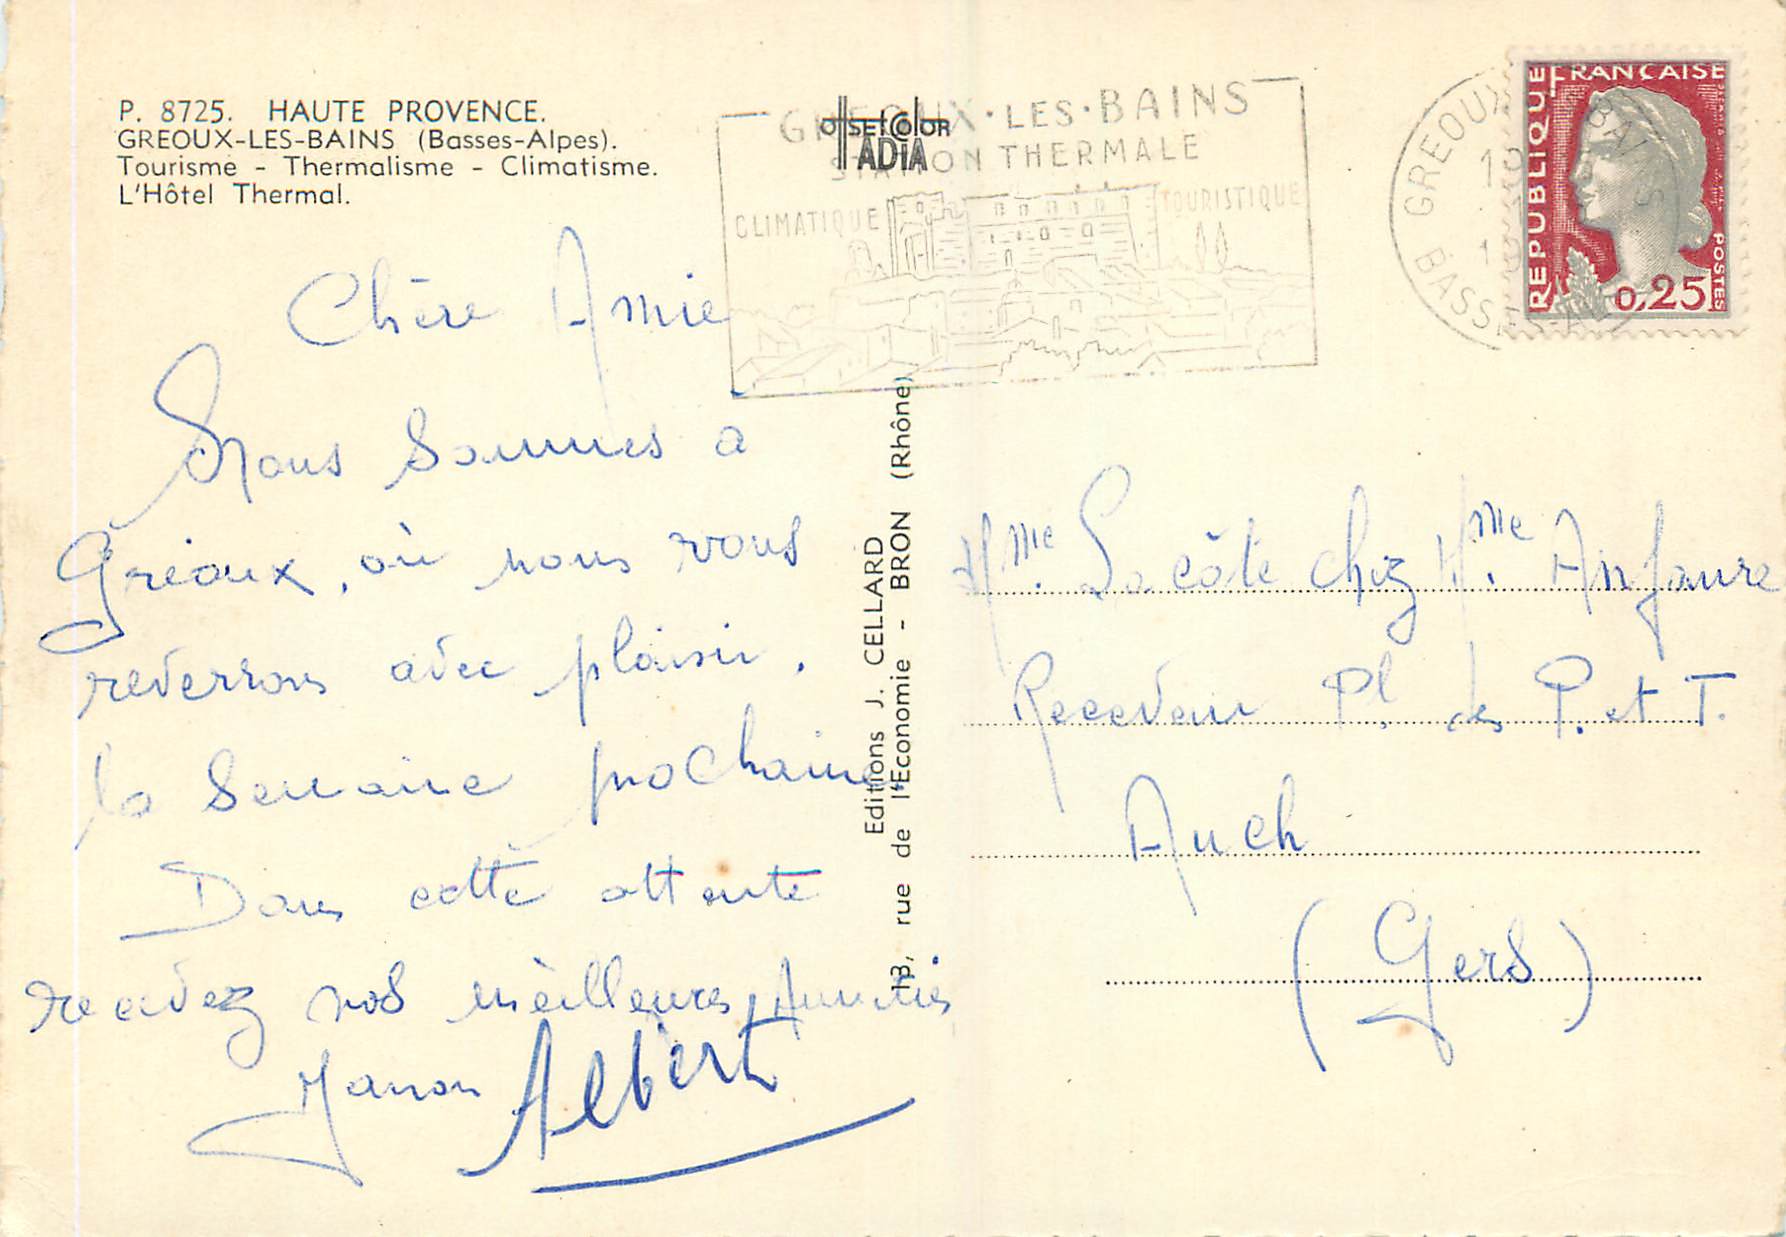 P. 8725. HAUTE PROVENCE.
GREOUX-LES-BAINS (Basses-Alpes).
Tourisme - Thermalisme - Climatisme.
L'Hôtel Thermal.
OffSEtCOlOR
ADIA
GREOUX·LES·BAINS
STATION THERMALE
CLIMATIQUE TOURISTIQUE
GREOUX BAINS
BASSES-A
REPUBLIQUE FRANCAISE
POSTES
0,25
Chère Amie
Nous sommes à
Gréoux, où nous vous
reverrons avec plaisir,
la semaine prochaine
Dans cette attente
recevez nos meilleures Amitiés
Manon Albert
Editions J. CELLARD
113, rue de l'Economie - BRON (Rhône)
Mme. Lacôte chez Mme. Anfaure
Receveur Pl. des P. et T.
Auch
(Gers)